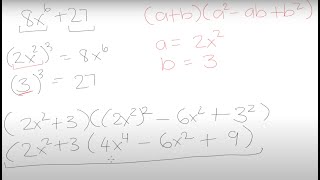 8x⁶ + 27
(a+b)(a² - ab + b²)
(2x²)³ = 8x⁶
a = 2x²
(3)³ = 27
b = 3
(2x²+3)((2x²)² - 6x² + 3²)
(2x²+3(4x⁴ - 6x² + 9)